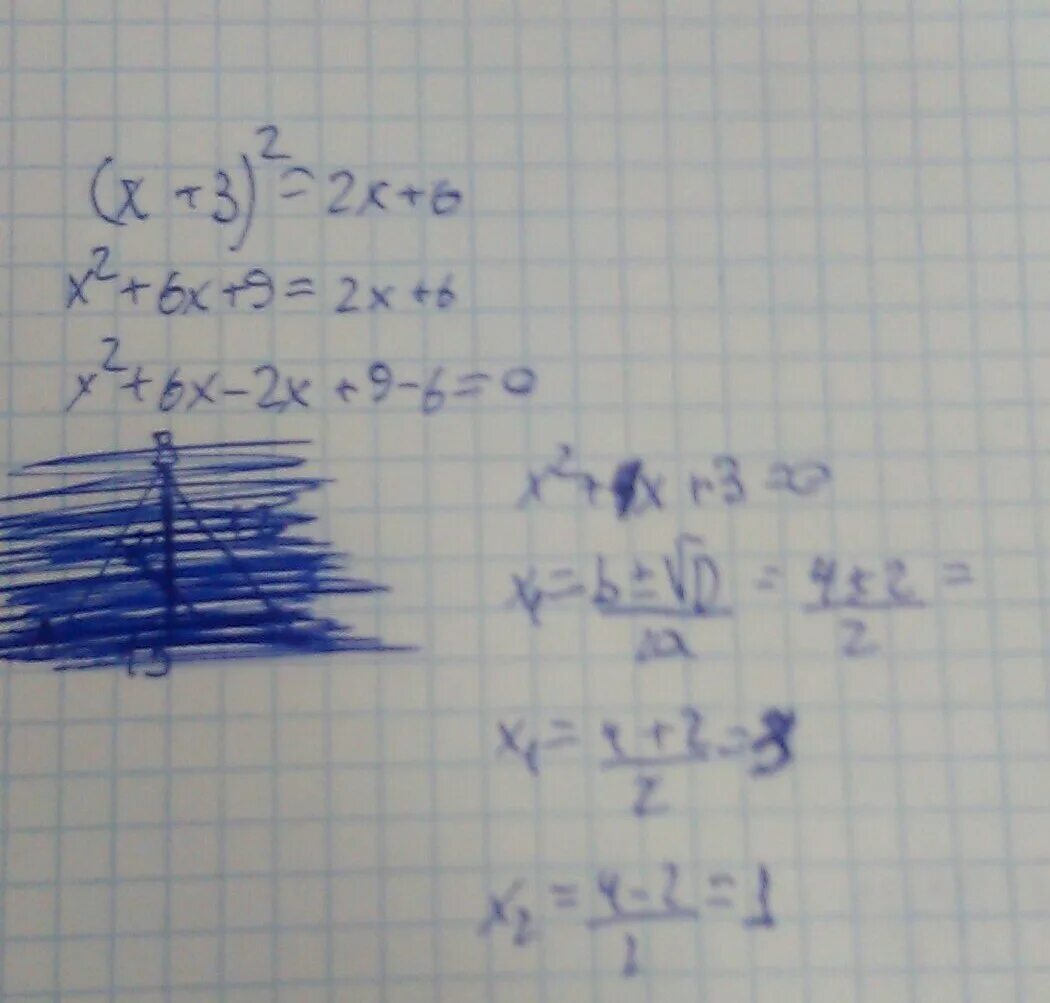 (x + 3)² = 2x + 6
x² + 6x + 9 = 2x + 6
x² + 6x - 2x + 9 - 6 = 0
x² + 4x + 3 = 0
x₁ = b ± √D / 2a = 4 ± 2 / 2 =
x₁ = 4 + 2 / 2 = 3
x₂ = 4 - 2 / 2 = 1